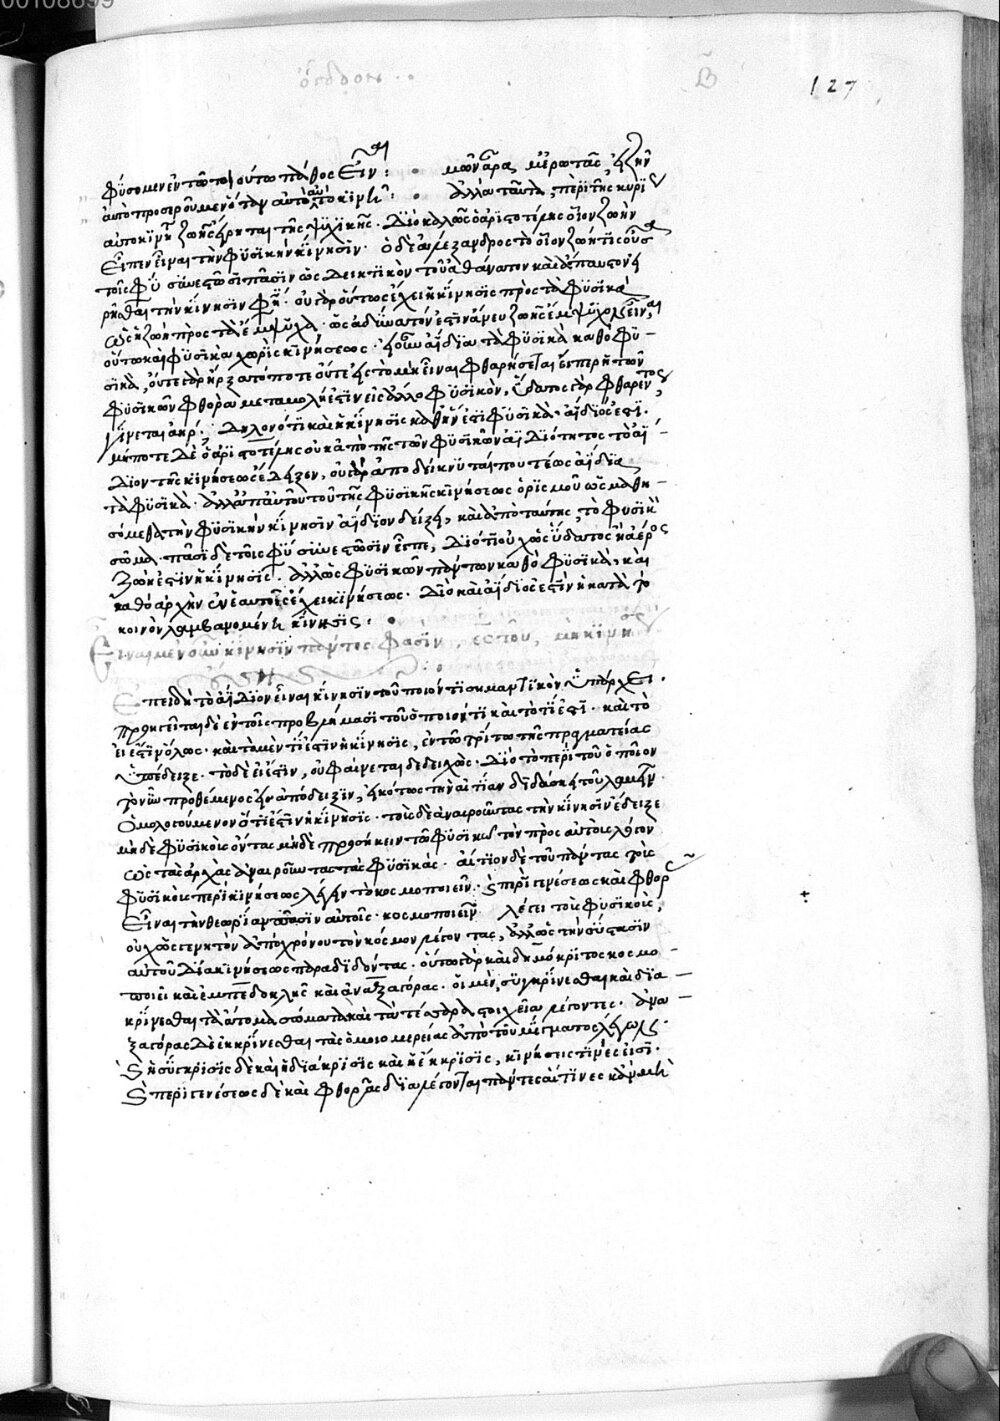 00108699
127
φύσομεν ἐν τῷ οὕτω πάθος εἶναι : μῶν ἄρα
ἀπὸ προσιρουμένου τὸν αὐτὸ : ἀλλὰ ταῦτα, περὶ τῆς κυρί
ζωῆς εἴρηται τῆς ψυχικῆς. Διὸ καλῶς ὁ ἀριστοτέλης οἷον ζωὴν
εἶπεν εἶναι τὴν φυσικὴν κίνησιν. ὁ δὲ ἀλέξανδρος τὸ οἷον ζωή τις οὖσα
τοῖς φύσει συνεστῶσι πᾶσιν ὡς δεικτικὸν τοῦ ἀθάνατον καὶ ἄπαυστον
τὴν κίνησιν φησί. οὕτως ἔχει ἡ κίνησις πρὸς τὰ φυσικὰ
ὡς ἡ ζωὴ πρὸς τὰ ἔμψυχα. ὡς ἀδύνατόν ἐστιν ἄνευ ζωῆς ἔμψυχον εἶναι,
οὕτω καὶ φυσικὰ χωρὶς κινήσεως. ἀΐδια τὰ φυσικὰ καθὸ φυ-
σικὰ, οὔτε γὰρ ἤρξατό ποτε οὔτε ἔσται μὴ εἶναι φθαρήσεται εἴπερ ἡ τῶν
φυσικῶν φθορὰ μεταβολή ἐστιν εἰς ἄλλο φυσικὸν, ὕδατος γὰρ φθαρέντος,
γίνεται ἀὴρ. Δῆλον ὅτι καὶ ἡ κίνησις καθ' ἥν ἐστι φυσικὰ ἀΐδιός ἐστι.
μήποτε δὲ ὁ ἀριστοτέλης οὐκ ἀπὸ τῆς τῶν φυσικῶν ἀϊδιότητος τὸ ἀΐ-
διον τῆς κινήσεως ἔδειξεν, οὐ γὰρ ἀποδείκνυταί που τέως ἀΐδια
τὰ φυσικὰ. ἀλλ' ἀπ' αὐτοῦ τοῦ τῆς φυσικῆς κινήσεως ὁρισμοῦ ὡς μαθη-
σόμεθα τὴν φυσικὴν κίνησιν ἀΐδιον δείξει, καὶ ἀπὸ ταύτης, τὸ φυσικὸν
σῶμα. πᾶσι δὲ τοῖς φύσει συνεστῶσιν εἶπε, διότι οὐχ ὡς ὕδατος ἢ ἀέρος
ζωή ἐστιν ἡ κίνησις. ἀλλ' ὡς φυσικῶν πάντων καθὸ φυσικὰ, καὶ
καθὸ ἀρχὴν ἐν ἑαυτοῖς ἔχει κινήσεως. Διὸ καὶ ἀΐδιός ἐστιν ἡ κατὰ τὸ
κοινὸν λαμβανομένη κίνησις :
Εἶναι μὲν οὖν κίνησιν πάντες φασὶν
Ἐπειδὴ τὸ ἀΐδιον εἶναι κίνησιν τοῦ ποῖόν τι σημαντικὸν ὑπάρχει.
προηγεῖται δὲ ἐν τοῖς προβλήμασι τοῦ ὁποῖόν τι καὶ τὸ τί ἐστι. καὶ τὸ
εἰ ἔστιν ὅλως. καὶ τὸ μὲν τί ἐστιν ἡ κίνησις, ἐν τῷ τρίτῳ τῆς πραγματείας
ὑπέδειξε. τὸ δὲ εἰ ἔστιν, οὐ φαίνεται δεδειχὼς. Διὸ τὸ περὶ τοῦ ὁποῖον
προθέμενος ἀπόδειξιν, εἰκότως τὴν αἰτίαν διδάσκει τοῦ λαμβάνειν
ὁμολογούμενον ὅτι ἔστιν ἡ κίνησις. τοὺς δὲ ἀναιροῦντας τὴν κίνησιν ἔδειξε
μηδὲ φυσικοὺς ὄντας μηδὲ προσήκειν τῷ φυσικῷ τὸν πρὸς αὐτοὺς λόγον
ὡς τὰς ἀρχὰς ἀναιροῦντας τὰς φυσικάς. αἴτιον δὲ τοῦ πάντας τοὺς
φυσικοὺς περὶ κινήσεως λέγειν τὸ κοσμοποιεῖν. περὶ γενέσεως καὶ φθορᾶς
εἶναι τὴν θεωρίαν πᾶσιν αὐτοῖς. κοσμοποιεῖν λέγει τοὺς φυσικοὺς,
οὐχ ὡς γενητὸν ἀπὸ χρόνου τὸν κόσμον λέγοντας, ἀλλ' ὡς τὴν σύστασιν
αὐτοῦ διὰ κινήσεως παραδιδόντας. οὕτω γὰρ καὶ δημόκριτος κοσμο-
ποιεῖ καὶ ἐμπεδοκλῆς καὶ ἀναξαγόρας. οἱ μὲν, συγκρίνεσθαι καὶ δια-
κρίνεσθαι τὰ ἄτομα σώματα καὶ τὰ τέσσαρα στοιχεῖα λέγοντες. ἀνα-
ξαγόρας δὲ ἐκκρίνεσθαι τὰς ὁμοιομερείας ἀπὸ τοῦ μίγματος λέγων.
ἡ σύγκρισις δὲ καὶ ἡ διάκρισις καὶ ἡ ἔκκρισις, κινήσεις τινές εἰσι.
περὶ γενέσεως δὲ καὶ φθορᾶς διαλέγονται πάντες οἵτινες κἂν μὴ